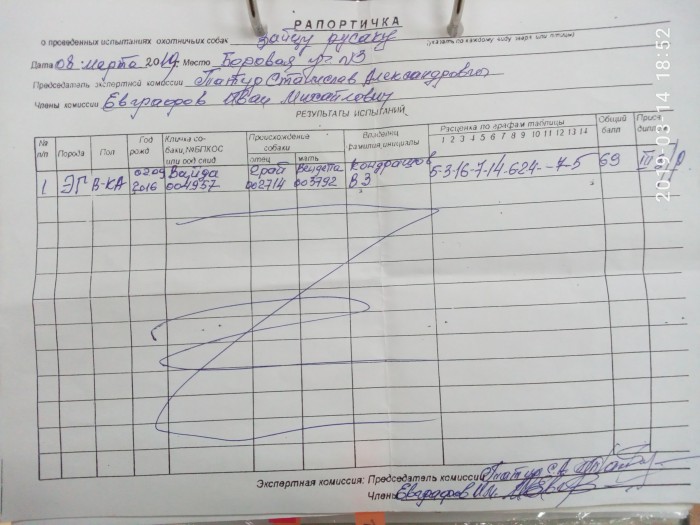 РАПОРТИЧКА
о проведенных испытаниях охотничьих собак зайцу русаку
(указать по каждому виду зверя или птицы)
Дата 08 марта 2019 г. Место Боровая уг. №3
Председатель экспертной комиссии Станислав Александрович
Члены комиссии Евграфов Иван Михайлович
РЕЗУЛЬТАТЫ ИСПЫТАНИЙ
№ п/п Порода Пол Год рожд Кличка собаки,№ВПКОС или род свид Происхождение собаки отец мать Владелец фамилия,инициалы Расценка по графам таблицы 1 2 3 4 5 6 7 8 9 10 11 12 13 14 Общий балл
1 ЭГ В-КА 0209 2016 Ванда 004957 Грай 002714 Вендета 003792 Кондрашов ВЗ 5-3-16-7-14-624--7-5 69 III
Экспертная комиссия: Председатель комиссии
Члены Евграфов И.М.
2019-03-14 18:52